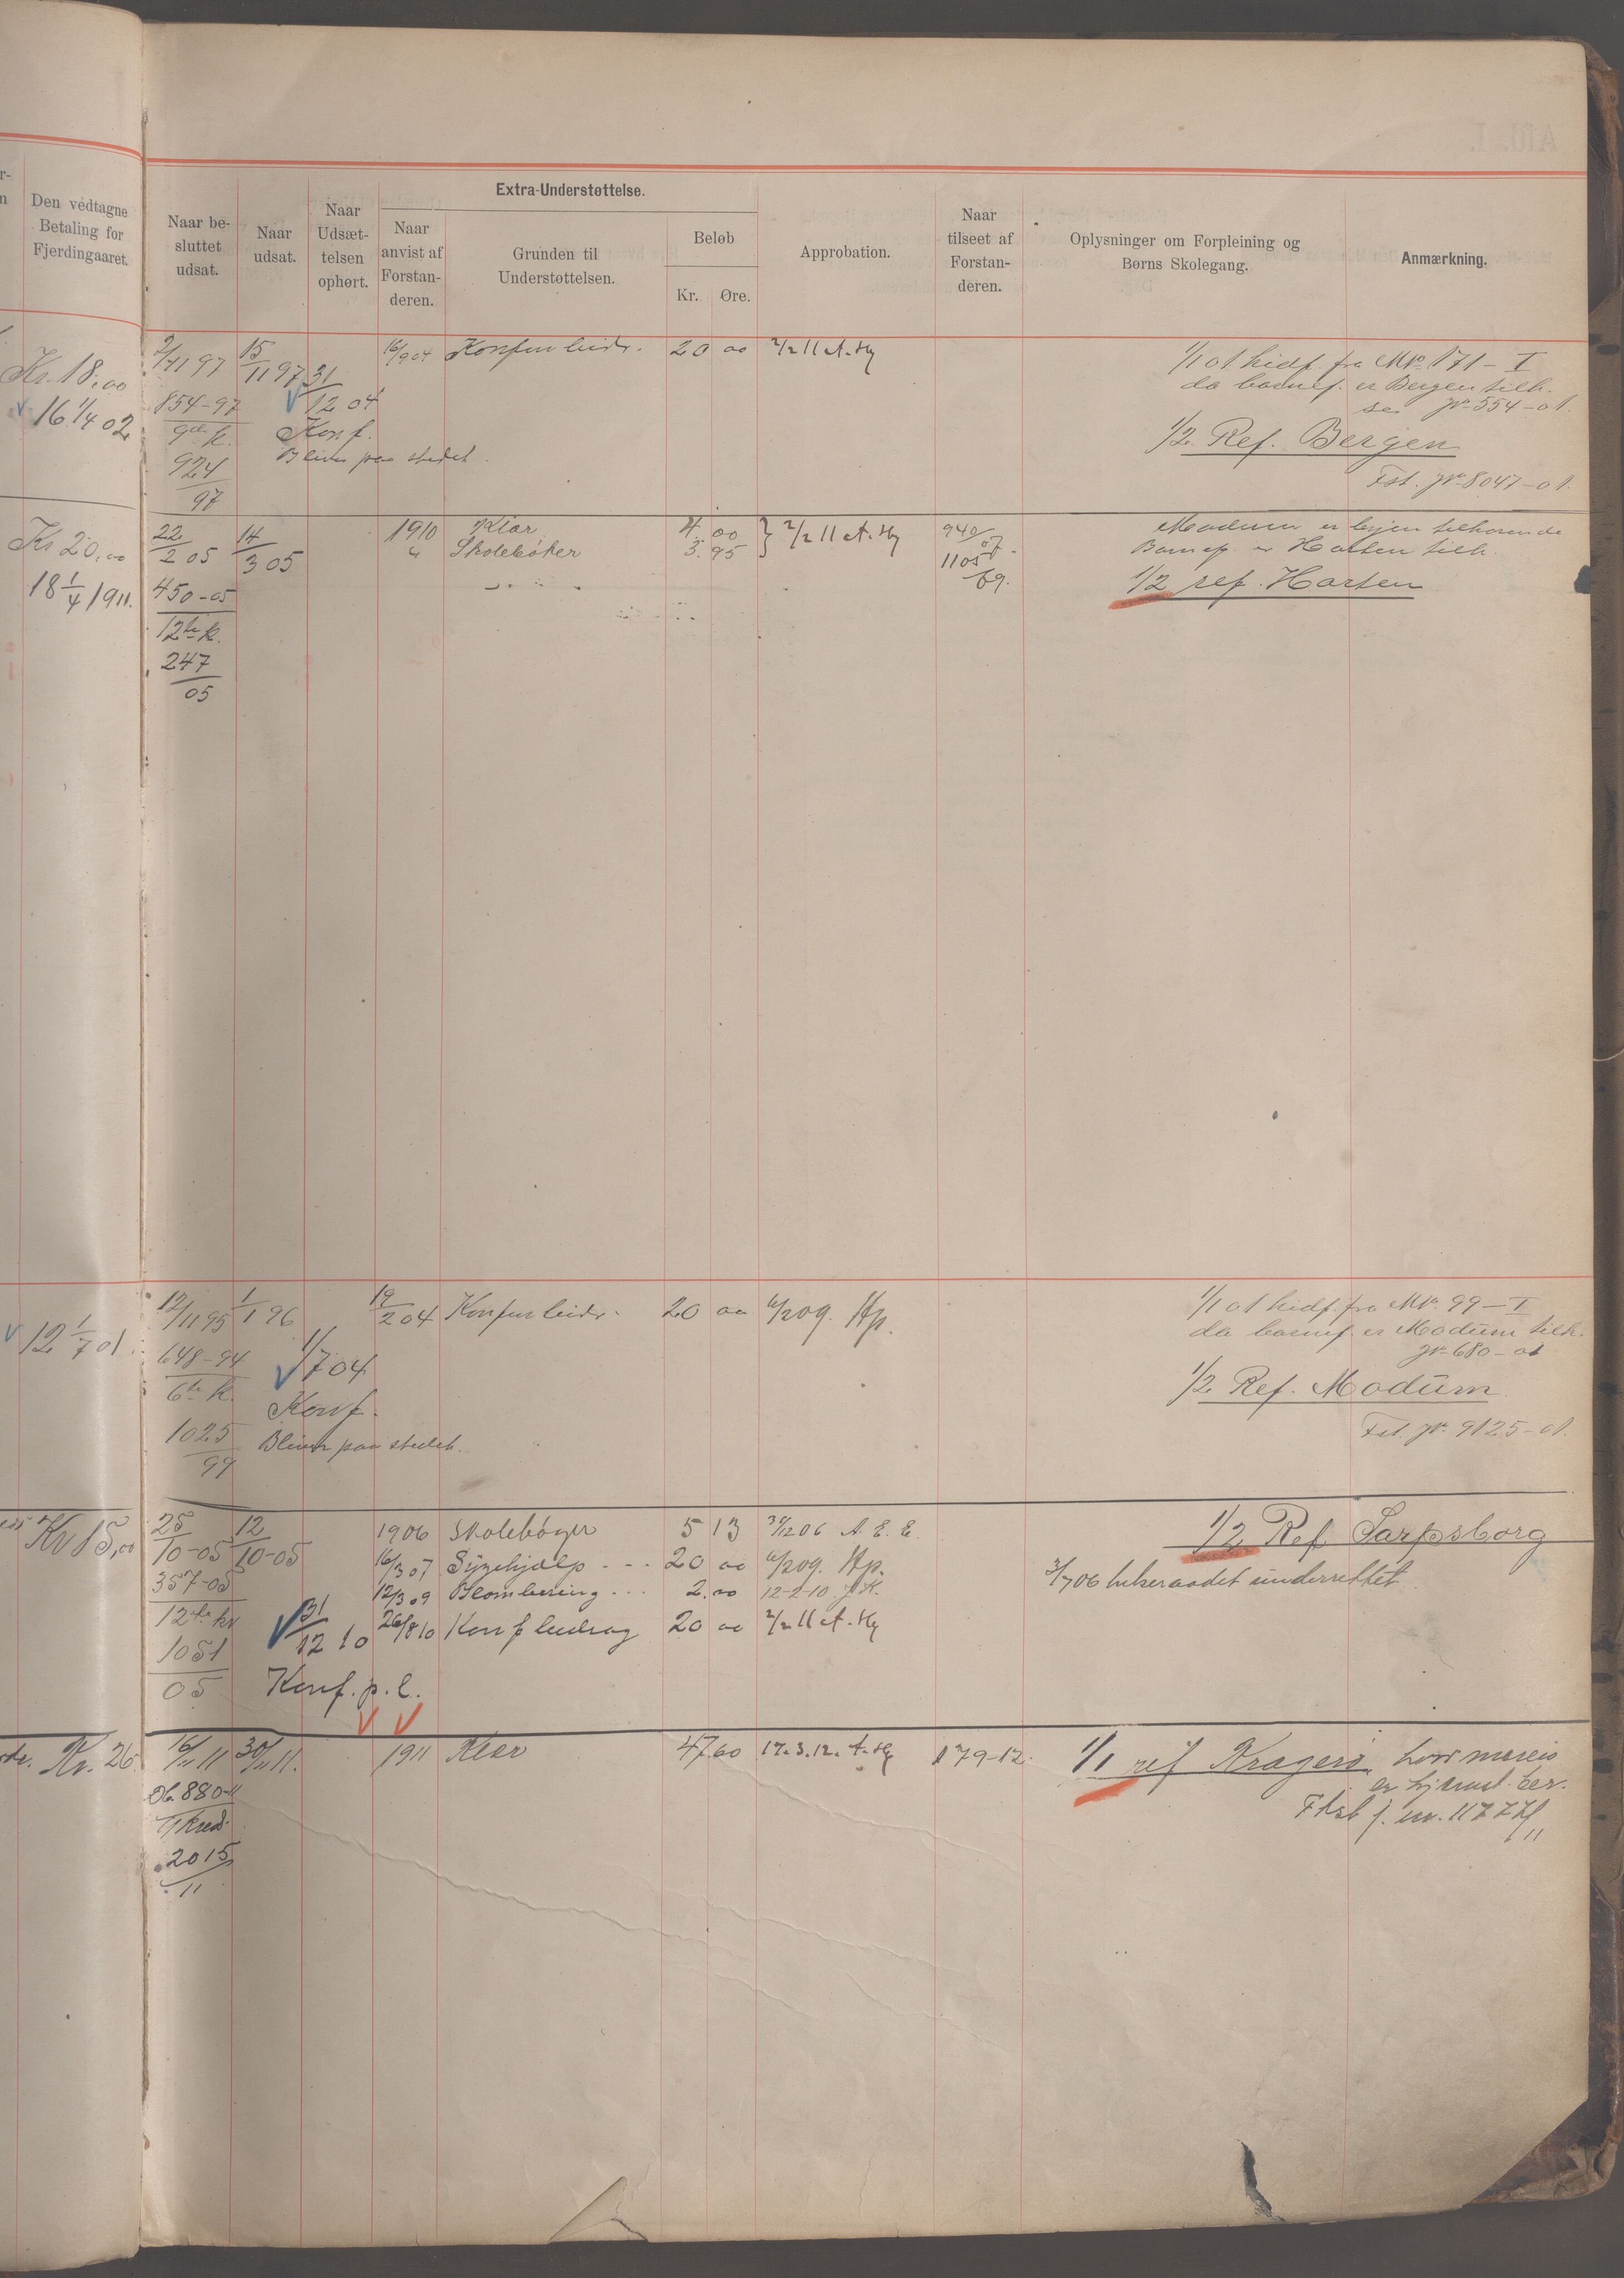 Den vedtagne
Betaling for
Fjerdingaaret.
Naar be-
sluttet
udsat.
Naar
udsat.
Naar
Udsæt-
telsen
ophørt.
Extra-Understøttelse.
Naar
anvist af
Forstan-
deren.
Grunden til
Understøttelsen.
Beløb
Kr. Øre.
Approbation.
Naar
tilseet af
Forstan-
deren.
Oplysninger om Forpleining og
Børns Skolegang.
Anmærkning.
Kr. 18,00
16 1/4 02
2/11 97
854-97
9de k.
924
97
15/11 97
31/12 04
Konf.
Bliver paa stedet.
16/9 04
20 00
2/2 11
1/1 01 hidf. fra No. 171 - I
da barnef. er Bergen tilh.
se jr 554-01.
1/2 Ref. Bergen
Fst. jr 8047-01.
Kr 20,00
18 1/4 1911.
22/2 05
450-05
12te k.
247
05
14/3 05
1910 Klær 4. 00
" Skolebøker 3. 95
2/2 11
940/07
1105/09.
Modum er byen tilhørende
Barnef. er Horten tilh.
1/2 ref. Horten
12 1/7 01.
12/11 95
648-94
6te k.
1025
99
1/1 96
1/7 04
Konf.
Bliver paa stedet.
19/2 04
20 00
6/2 09. Hp.
1/1 01 hidf. fra No. 99 - I
da barnef. er Modum tilh.
jr 680-01
1/2 Ref. Modum
Fst. jr. 9125-01.
Kr 15,00
25/10-05
357-05
12te kr
1051
05
12/10-05
31/12 10
Konf. p. l.
1906 Skolebøger 5 13 31/12 06 A. E. E.
16/3 07 Sygehjælp - - - 20 00 6/2 09. Hp.
12/3 09 Plombering - - - 2.00 12-2-10 J.K.
26/8 10 Konf bidrag 20 00 2/2 11
1/2 Ref Sarpsborg
3/7 06 underrettet
Kr. 26
16/11 11
Ob. 880-11
kred.
2015
11
30/11 11.
1911 Klær 47 60 12.3.12.
179-12.
1/1 ref Kragerø,
j. nr. 11777/11